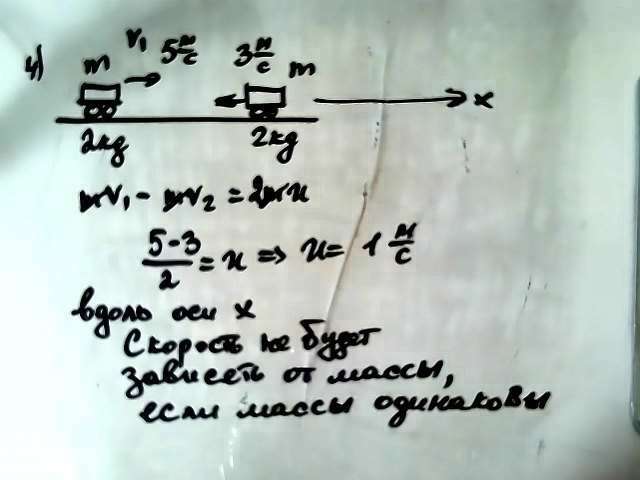 4) m v₁ 5 м/с 3 м/с m
x
2кg 2кg
mv₁ - mv₂ = 2mu
(5-3)/2 = u => u = 1 м/с
вдоль оси x
Скорость не будет
зависеть от массы,
если массы одинаковы